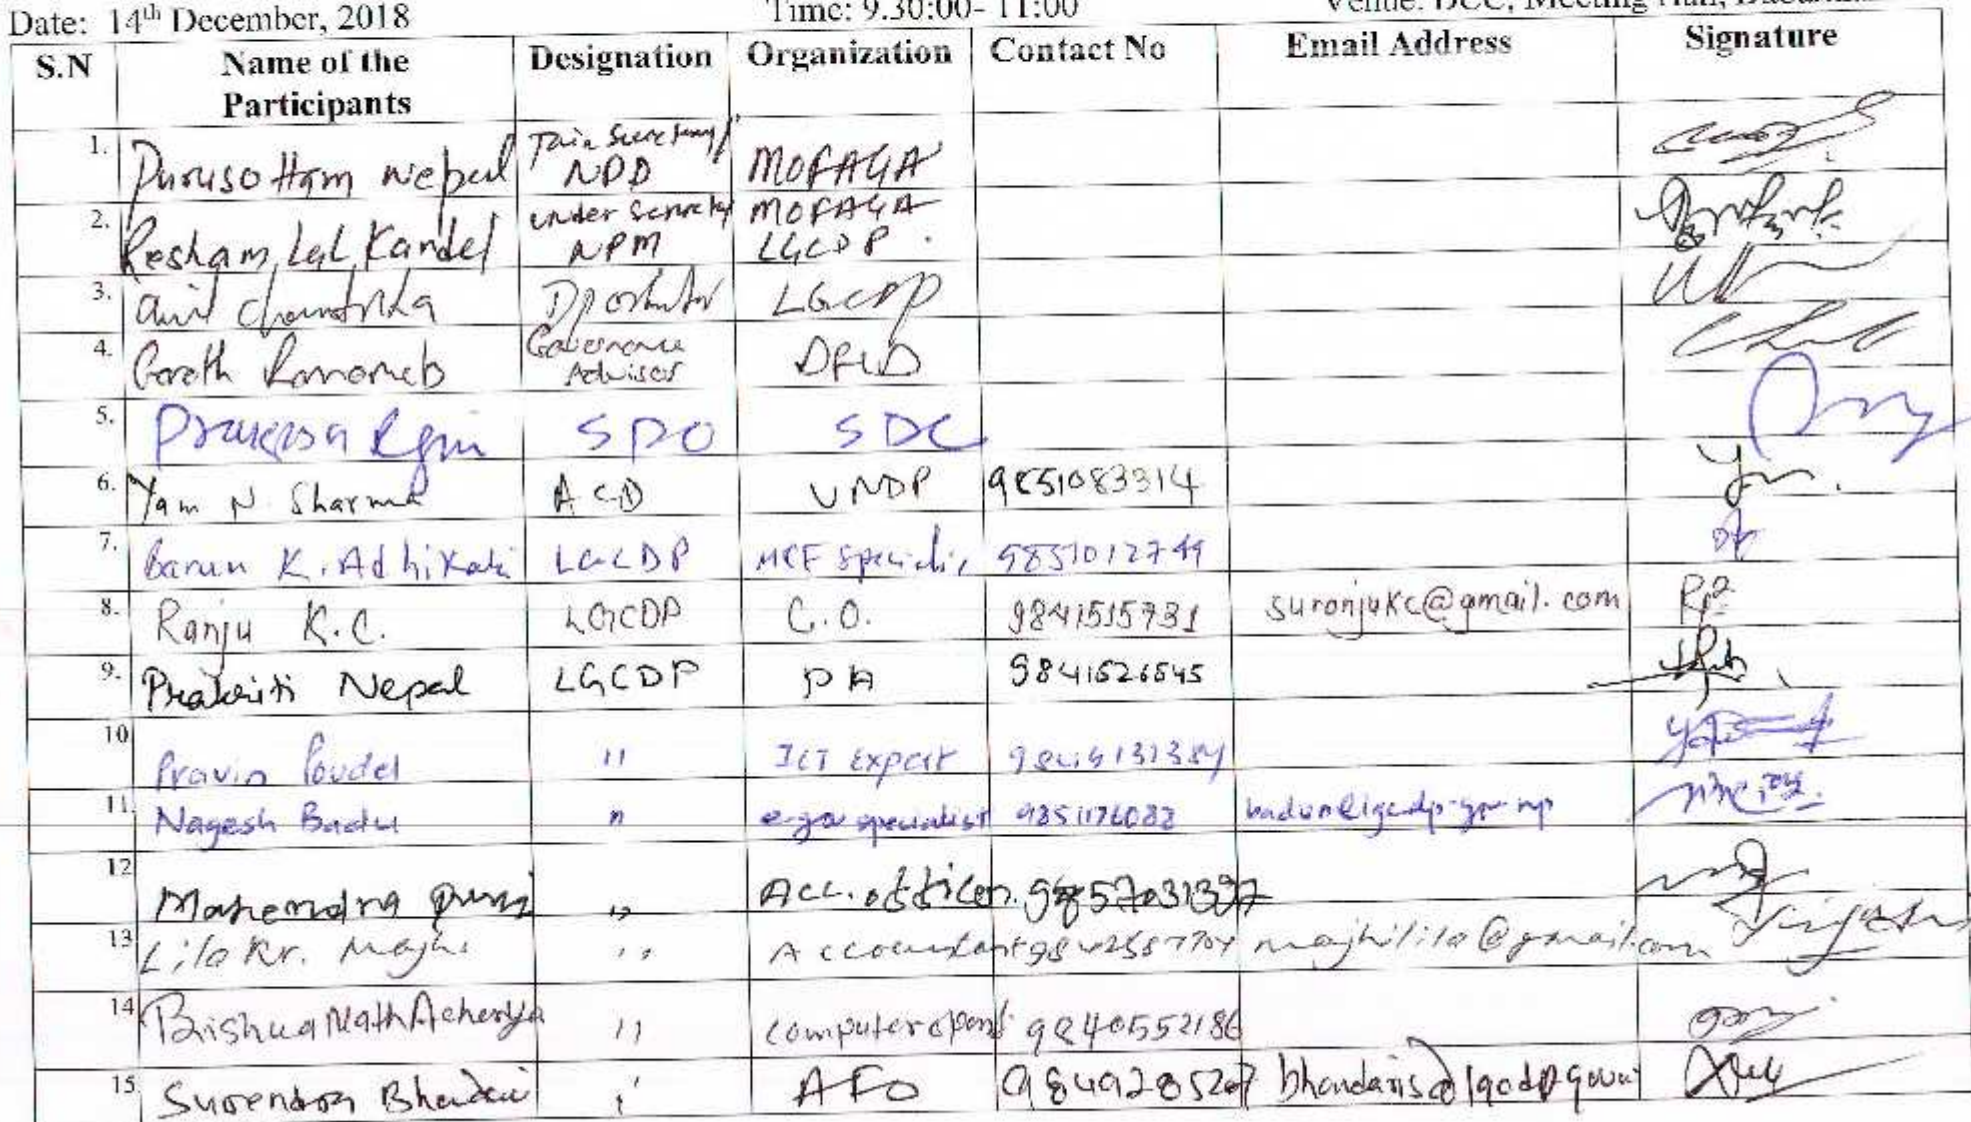 Date: 14th December, 2018 Time: 9.30:00- 11:00 Venue: DCC, Meeting Hall,
S.N Name of the Participants Designation Organization Contact No Email Address Signature
1. Purusottam Nepal NPD MOFAGA
2. Resham Lal Kandel Under Secretary NPM MOFAGA LGCDP
3. Anil Chandrika LGCDP
4. Gareth Governance Advisor DFID
5. Regmi SPO SDC
6. Yam N. Sharma ACD UNDP 9851083314
7. Barun K. Adhikari LGCDP Specialis 9851012749
8. Ranju K.C. LGCDP C.O. 9841515731 suronjukc@gmail.com
9. Prakriti Nepal LGCDP PA 9841526545
10 Pravin Poudel " ICT Expert
11. Nagesh Badu " e-gov specialist 9851176088
12 Mahendra " Acc. officer
13 Lila Kr. Majhi " Accountant majhilila@gmail.com
14 Bishwa Nath Acharya " 9840552186
15 Surendra Bhandari " AFO